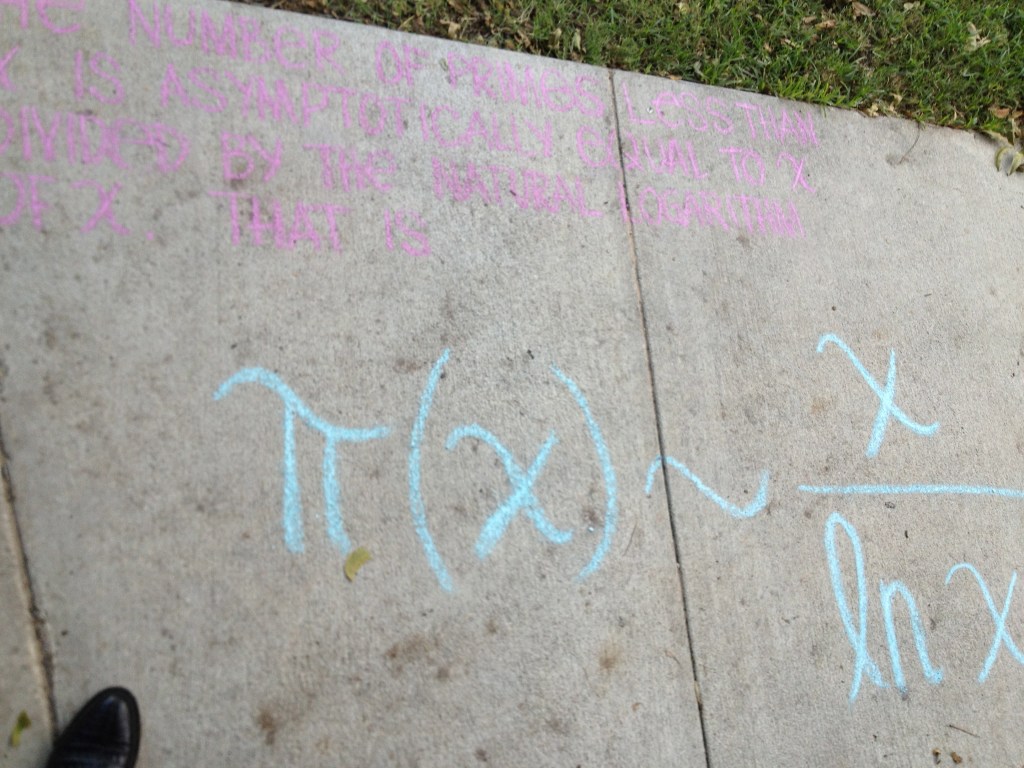 HE NUMBER OF PRIMES LESS THAN
X IS ASYMPTOTICALLY EQUAL TO X
DIVIDED BY THE NATURAL LOGARITHM
OF X. THAT IS
π(x) ~ x / ln x